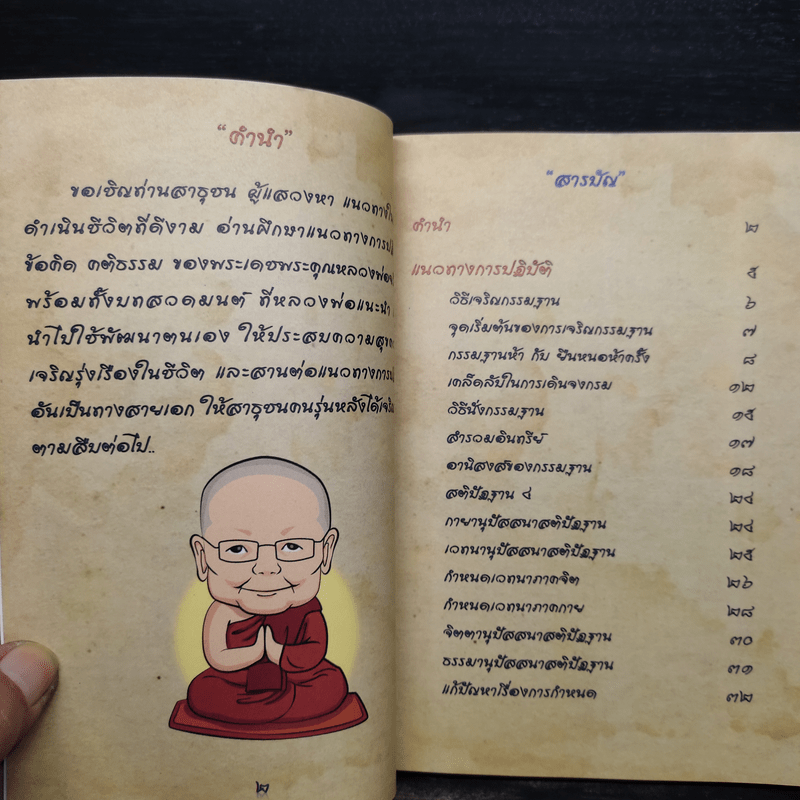 “คำนำ”
ขอเชิญท่านสาธุชน ผู้แสวงหา แนวทางใ
ดำเนินชีวิตที่ดีงาม อ่านศึกษาแนวทางการป
ข้อคิด คติธรรม ของพระเดชพระคุณหลวงพ่อ
พร้อมทั้งบทสวดมนต์ ที่หลวงพ่อแนะนำ
นำไปใช้พัฒนาตนเอง ให้ประสบความสุข
เจริญรุ่งเรืองในชีวิต และสานต่อแนวทางการ
อันเป็นทางสายเอก ให้สาธุชนคนรุ่นหลังได้เจริ
ตามสืบต่อไป..
๒
“สารบัญ”
คำนำ ๒
แนวทางการปฏิบัติ ๕
วิธีเจริญกรรมฐาน ๖
จุดเริ่มต้นของการเจริญกรรมฐาน ๗
กรรมฐานห้า กับ ยืนหนอห้าครั้ง ๘
เคล็ดลับในการเดินจงกรม ๑๒
วิธีนั่งกรรมฐาน ๑๕
สำรวมอินทรีย์ ๑๗
อานิสงส์ของกรรมฐาน ๑๘
สติปัฏฐาน ๔ ๒๔
กายานุปัสสนาสติปัฏฐาน ๒๔
เวทนานุปัสสนาสติปัฏฐาน ๒๕
กำหนดเวทนาภาคจิต ๒๖
กำหนดเวทนาภาคกาย ๒๘
จิตตานุปัสสนาสติปัฏฐาน ๓๐
ธรรมานุปัสสนาสติปัฏฐาน ๓๑
แก้ปัญหาเรื่องการกำหนด ๓๒